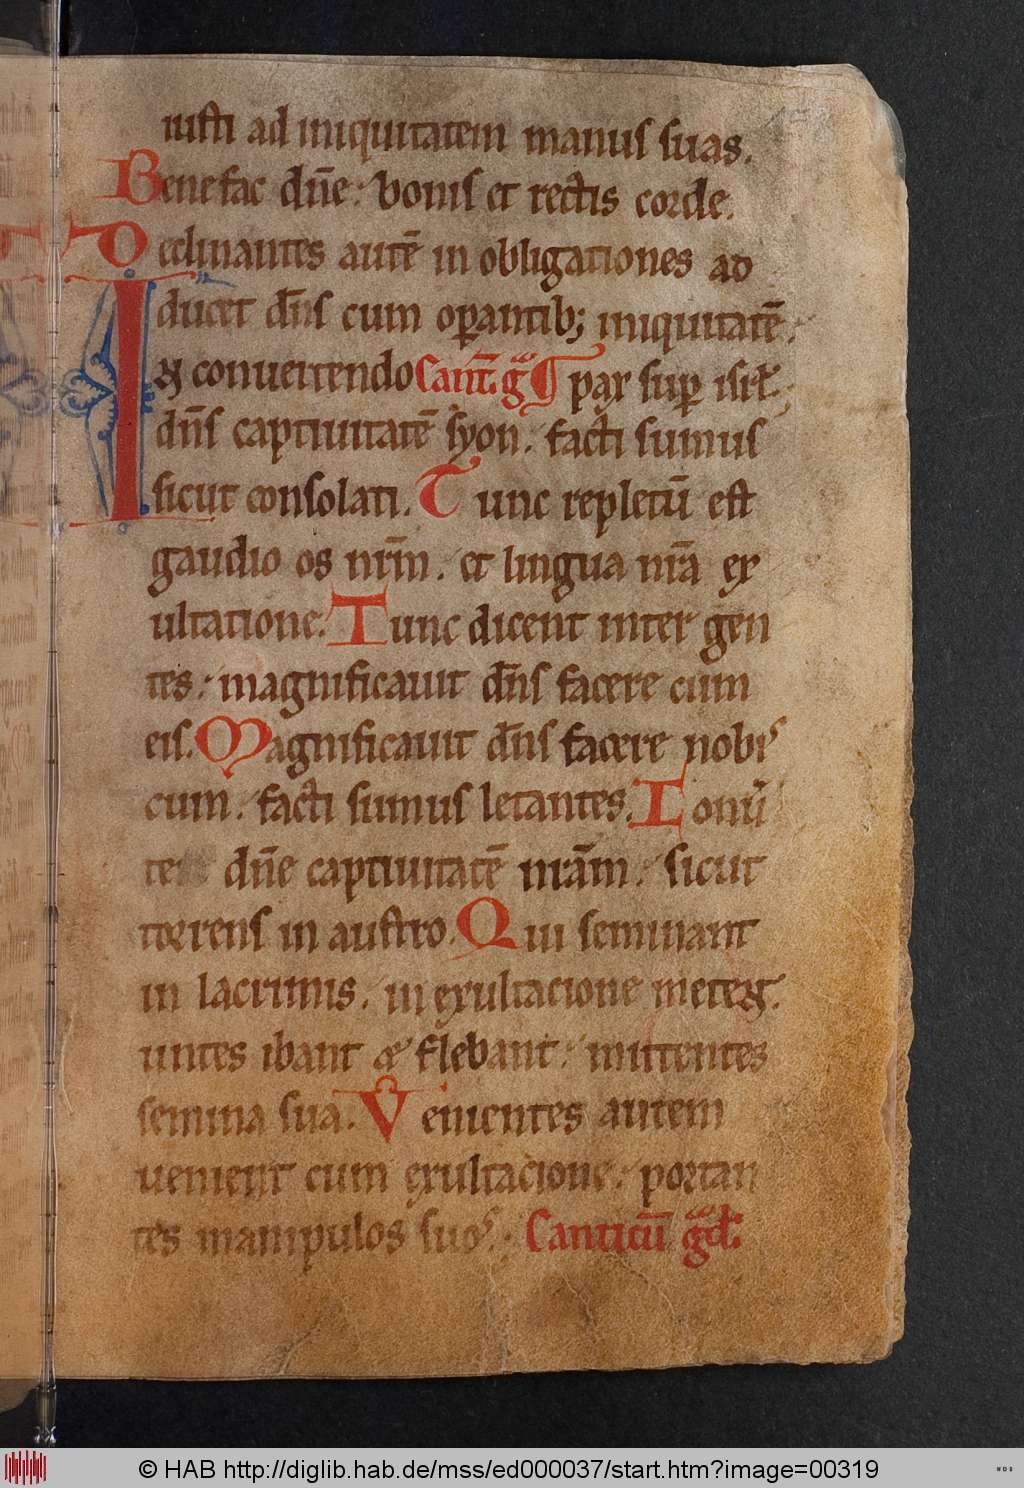 iusti ad iniquitatem manus suas.
Benefac dn̄e: bonis et rectis corde.
Declinantes autē in obligationes ad
ducet dn̄s cum oꝑantib; iniquitatē:
In conuertendo Cant̄. g ¶ pax suꝑ isrł.
dn̄s captiuitatē syon. facti sumus
sicut consolati. Tunc repletū est
gaudio os nr̄m. et lingua nr̄a ex
ultatione. Tunc dicent inter gen
tes: magnificauit dn̄s facere cum
eis. Magnificauit dn̄s facere nobis
cum: facti sumus letantes. Conu̇
te dn̄e captiuitatē nrām: sicut
torrens in austro. Qui seminant
in lacrimis. in exultacione metent.
untes ibant & flebant: mittentes
semina sua. Venientes autem
uenient cum exultacione: portan
tes manipulos suos: Canticū gͣd:
© HAB http://diglib.hab.de/mss/ed000037/start.htm?image=00319